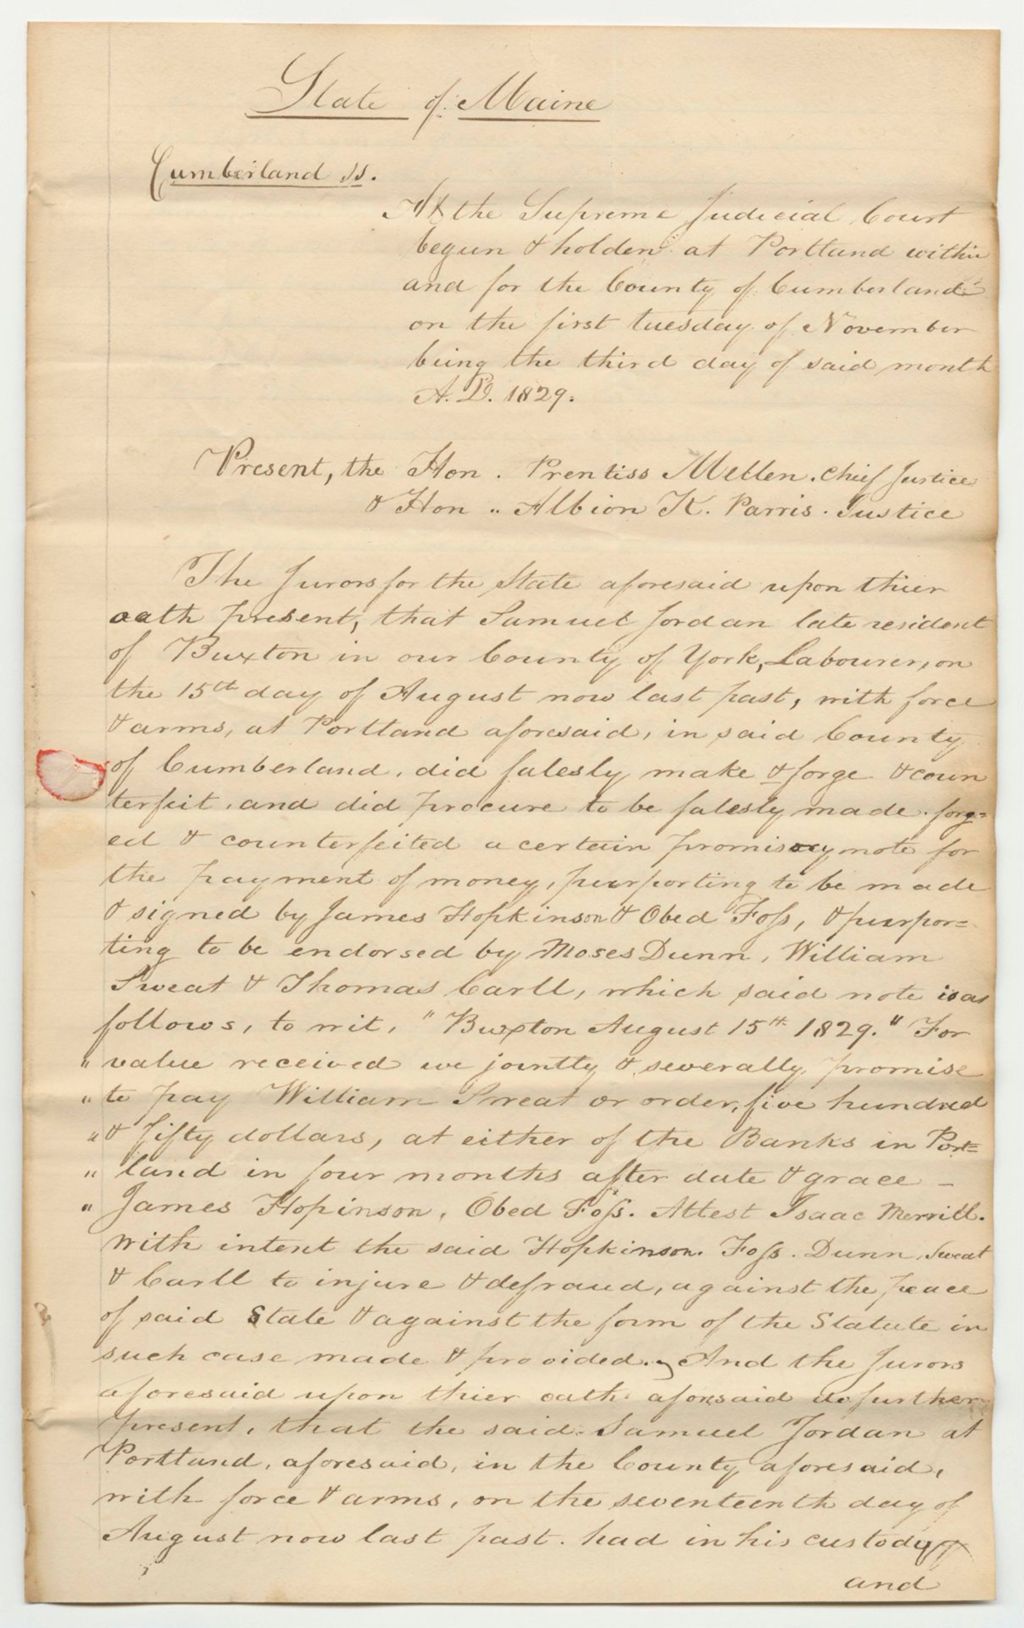 State of Maine
Cumberland ss.
At the Supreme Judicial Court
begun & holden at Portland within
and for the County of Cumberland
on the first tuesday of November
being the third day of said month
A.D. 1829.
Present, the Hon. Prentiss Mellen. Chief Justice
& Hon.. Albion K. Parris. Justice
The Jurors for the State aforesaid upon thier
oath present, that Samuel Jordan late resident
of Buxton in our County of York, Labourer, on
the 15th day of August now last past, with force
& arms, at Portland aforesaid, in said County
of Cumberland. did falesly make & forge & coun
terfeit, and did procure to be falesly made. forg=
ed & counterfeited a certain promisory note for
the payment of money, purporting to be made
& signed by James Hopkinson & Obed Foss, & purpor=
ting to be endorsed by Moses Dunn, William
Sweat & Thomas Carll, which said note is as
follows, to wit, "Buxton August 15th 1829." For
" value received we jointly & severally promise
" to pay William Sweat or order, five hundred
" & fifty dollars, at either of the Banks in Port=
" land in four months after date & grace –
" James Hopinson, Obed Foss. Attest Isaac Merrill.
With intent the said Hopkinson. Foss. Dunn, Sweat
& Carll to injure & defraud, against the peace
of said State & against the form of the Statute in
such case made & provided. And the Jurors
aforesaid upon thier oath aforesaid do further
present, that the said Samuel Jordan at
Portland, aforesaid, in the County aforesaid,
with force & arms, on the seventeenth day of
August now last past. had in his custody
and